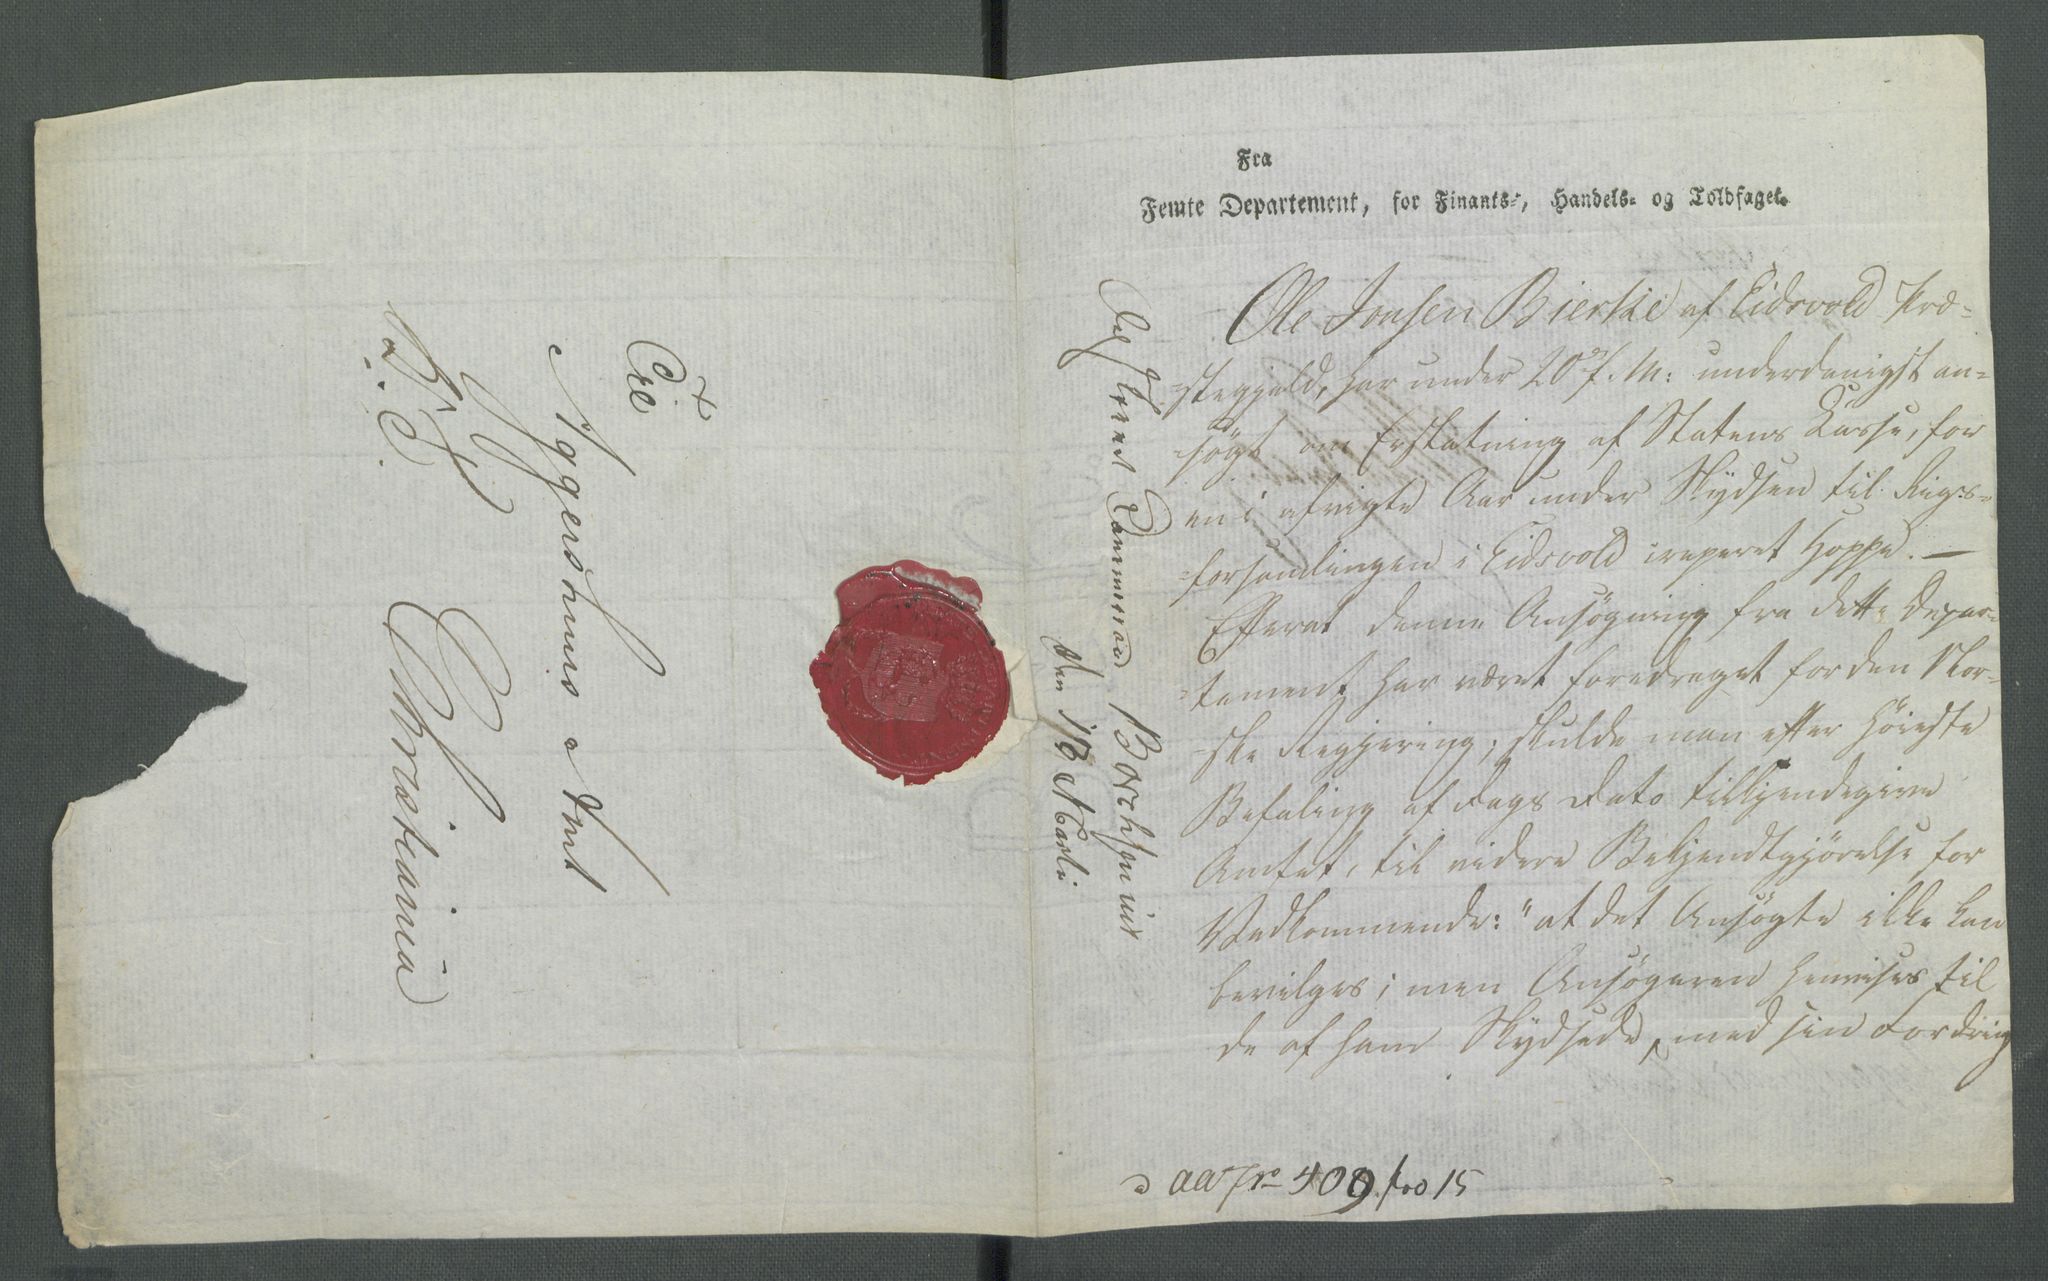 Fra
Femte Departement, for Finants-, Handels- og Toldfaget.
Ole Jonsen Bierke af Eidsvold Præ-
-stegjeld, har under 20de f. M: underdanigst an-
-søgt om Erstatning af Statens Kasse, for
en i afvigte Aar under Skydsen til Rigs-
-forsamlingen i Eidsvold creperet Hoppe. —
Efterat denne Ansøgning fra dette Depar-
-tement har været foredraget for den Nor-
-ske Regjering; skulde man efter Höieste
Befaling af Dags Dato tilkjendegive
Amtet, til videre Bekjendtgjörelse for
Vedkommende: "at det Ansøgte ikke kan
bevilges; men Ansøgeren henvises til
de af ham Skydsede, med sin Fordring
aar No 409 pro 15
Lensmand
den 18 Marti
Til
Aggershuus Amt
Christiania